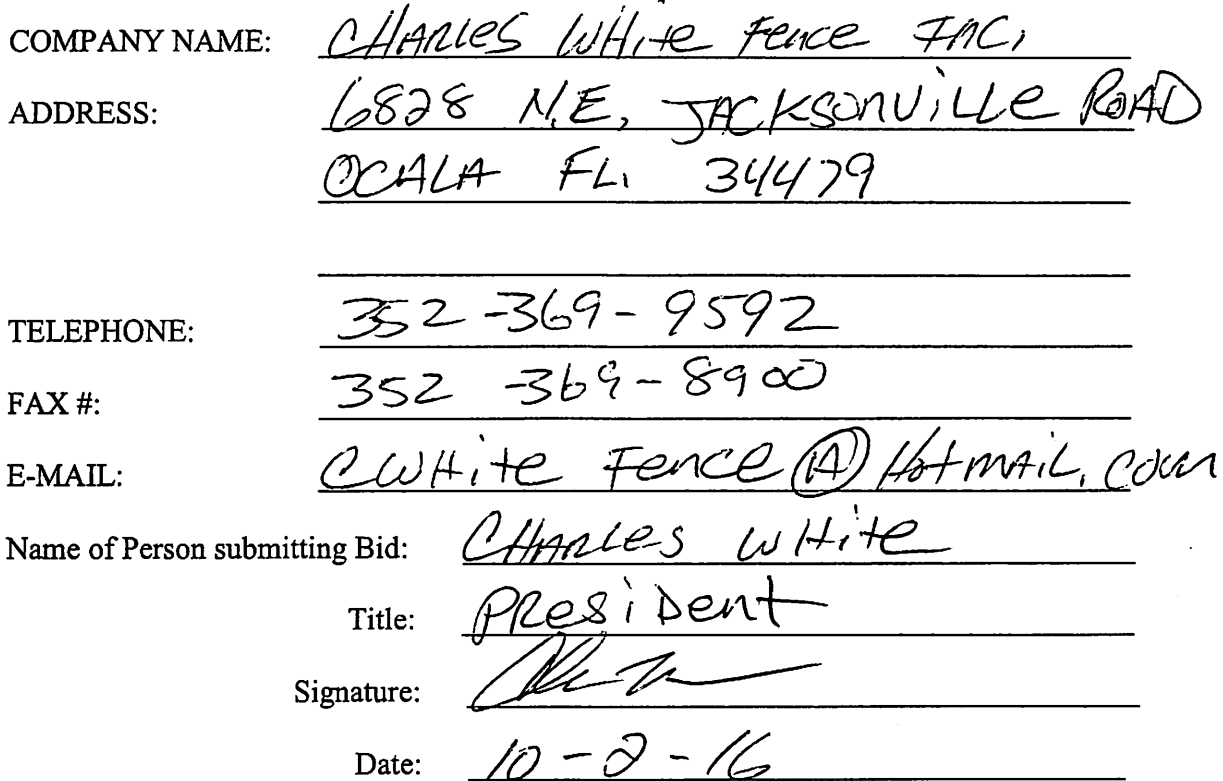 COMPANY NAME: CHARLES WHite Fence INC.
ADDRESS: 6828 N.E. JACKSONVILLe ROAD
OCALA FL. 34479
TELEPHONE: 352-369-9592
FAX #: 352-369-8900
E-MAIL: CWHite Fence @ Hotmail.com
Name of Person submitting Bid: CHARLes WHite
Title: PResiDent
Signature:
Date: 10-2-16